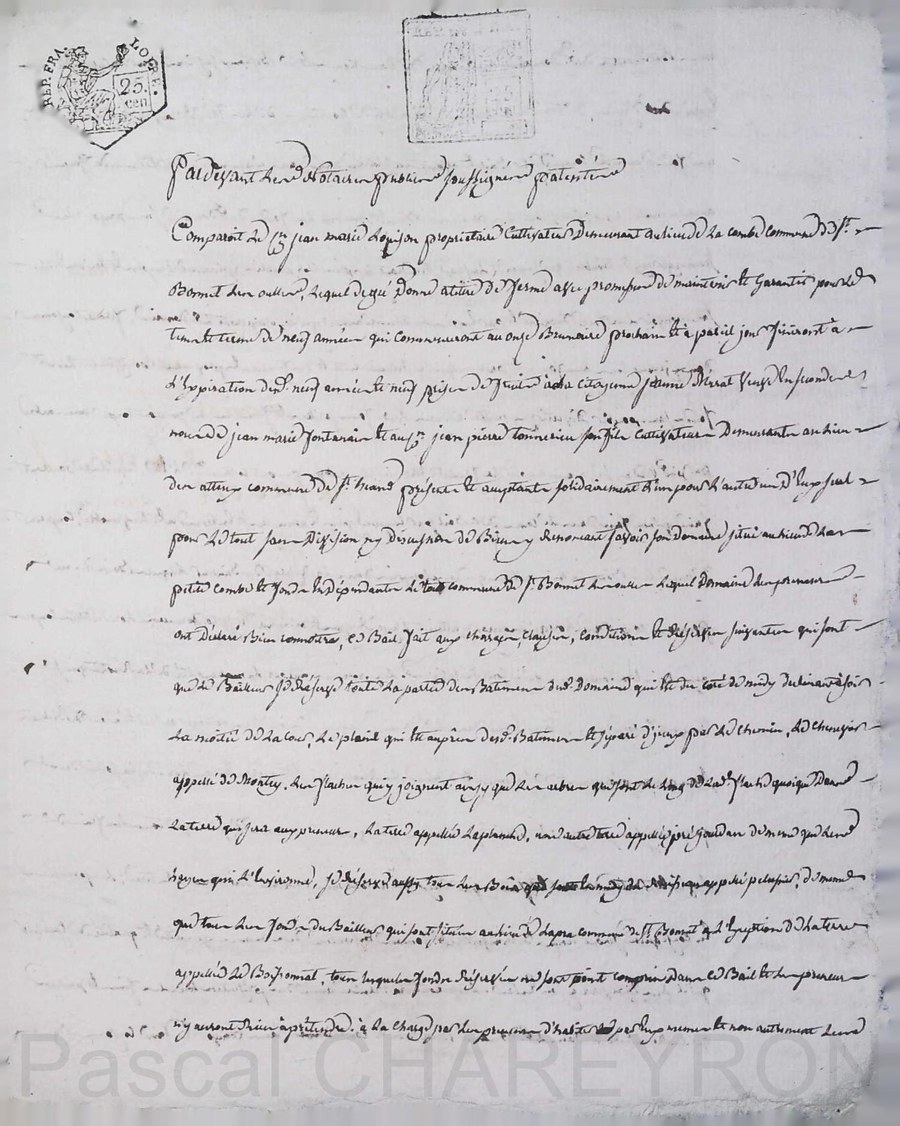 REP. FRA. LOI
25.
cen
Pardevant les Notaires publics soussignés patentés
Comparoit le Cen jean marie Louison propriétaire Cultivateur Demeurant au lieu de La combe commune de St.
Bonnet les oulles, Lequel de gré Donne a titre de ferme avec promesse de maintenir et Garantir pour le
tems et terme de neuf années qui Commenceront au onze Brumaire prochain et a pareil jour finiront à
L'Expiration desd. neuf années et neuf prises de fruits a la Citoyenne jeanne veuve En secondes
noces de jean marie fontanais et au Cen jean pierre son fils Cultivateurs Demeurants au lieu
des commune de St. présents et acceptants solidairement l'un pour L'autre un D'Eux seul
pour Le tout sans Division ny Discussion de Biens y Renonçant savoir son Domaine situé au lieu de La
petite combe et fonds En Dépendants Le tout commune de St. Bonnet les oulles Lequel Domaine les preneurs
ont Déclaré Bien connoitre, ce Bail fait aux charges, clauses, conditions et Réserves suivantes qui sont
que Le Bailleur se Réserve toute La partie des Batiments dud. Domaine qui Est du coté de midy
La moitié de La Cour, Le plasil qui Est auprès desd. Batiments et séparé d'iceux par Le Chemin, Le
appellé de Montey, Les qui y joignent ainsy que Les arbres qui sont Le Long de Lad. quoique Dans
La terre qui sera aux preneurs, La terre appellée Laplanche, une autre terre appellée pré jourdan de meme que Les
hayes qui L'Environne, se Réserve aussy tous Les Bois appellé de meme
que tous Les fonds du Bailleur qui sont situés au lieu de Lapra commune de St Bonnet a L'Exception de La terre
appellée Le Boissonnat, tous Lesquels fonds Réservés ne sont point compris Dans ce Bail et Les preneurs
n'y auront Rien à prétendre. à La Charge par Les preneurs d'habiter par Eux memes et non autrement Les
Pascal CHAREYRON